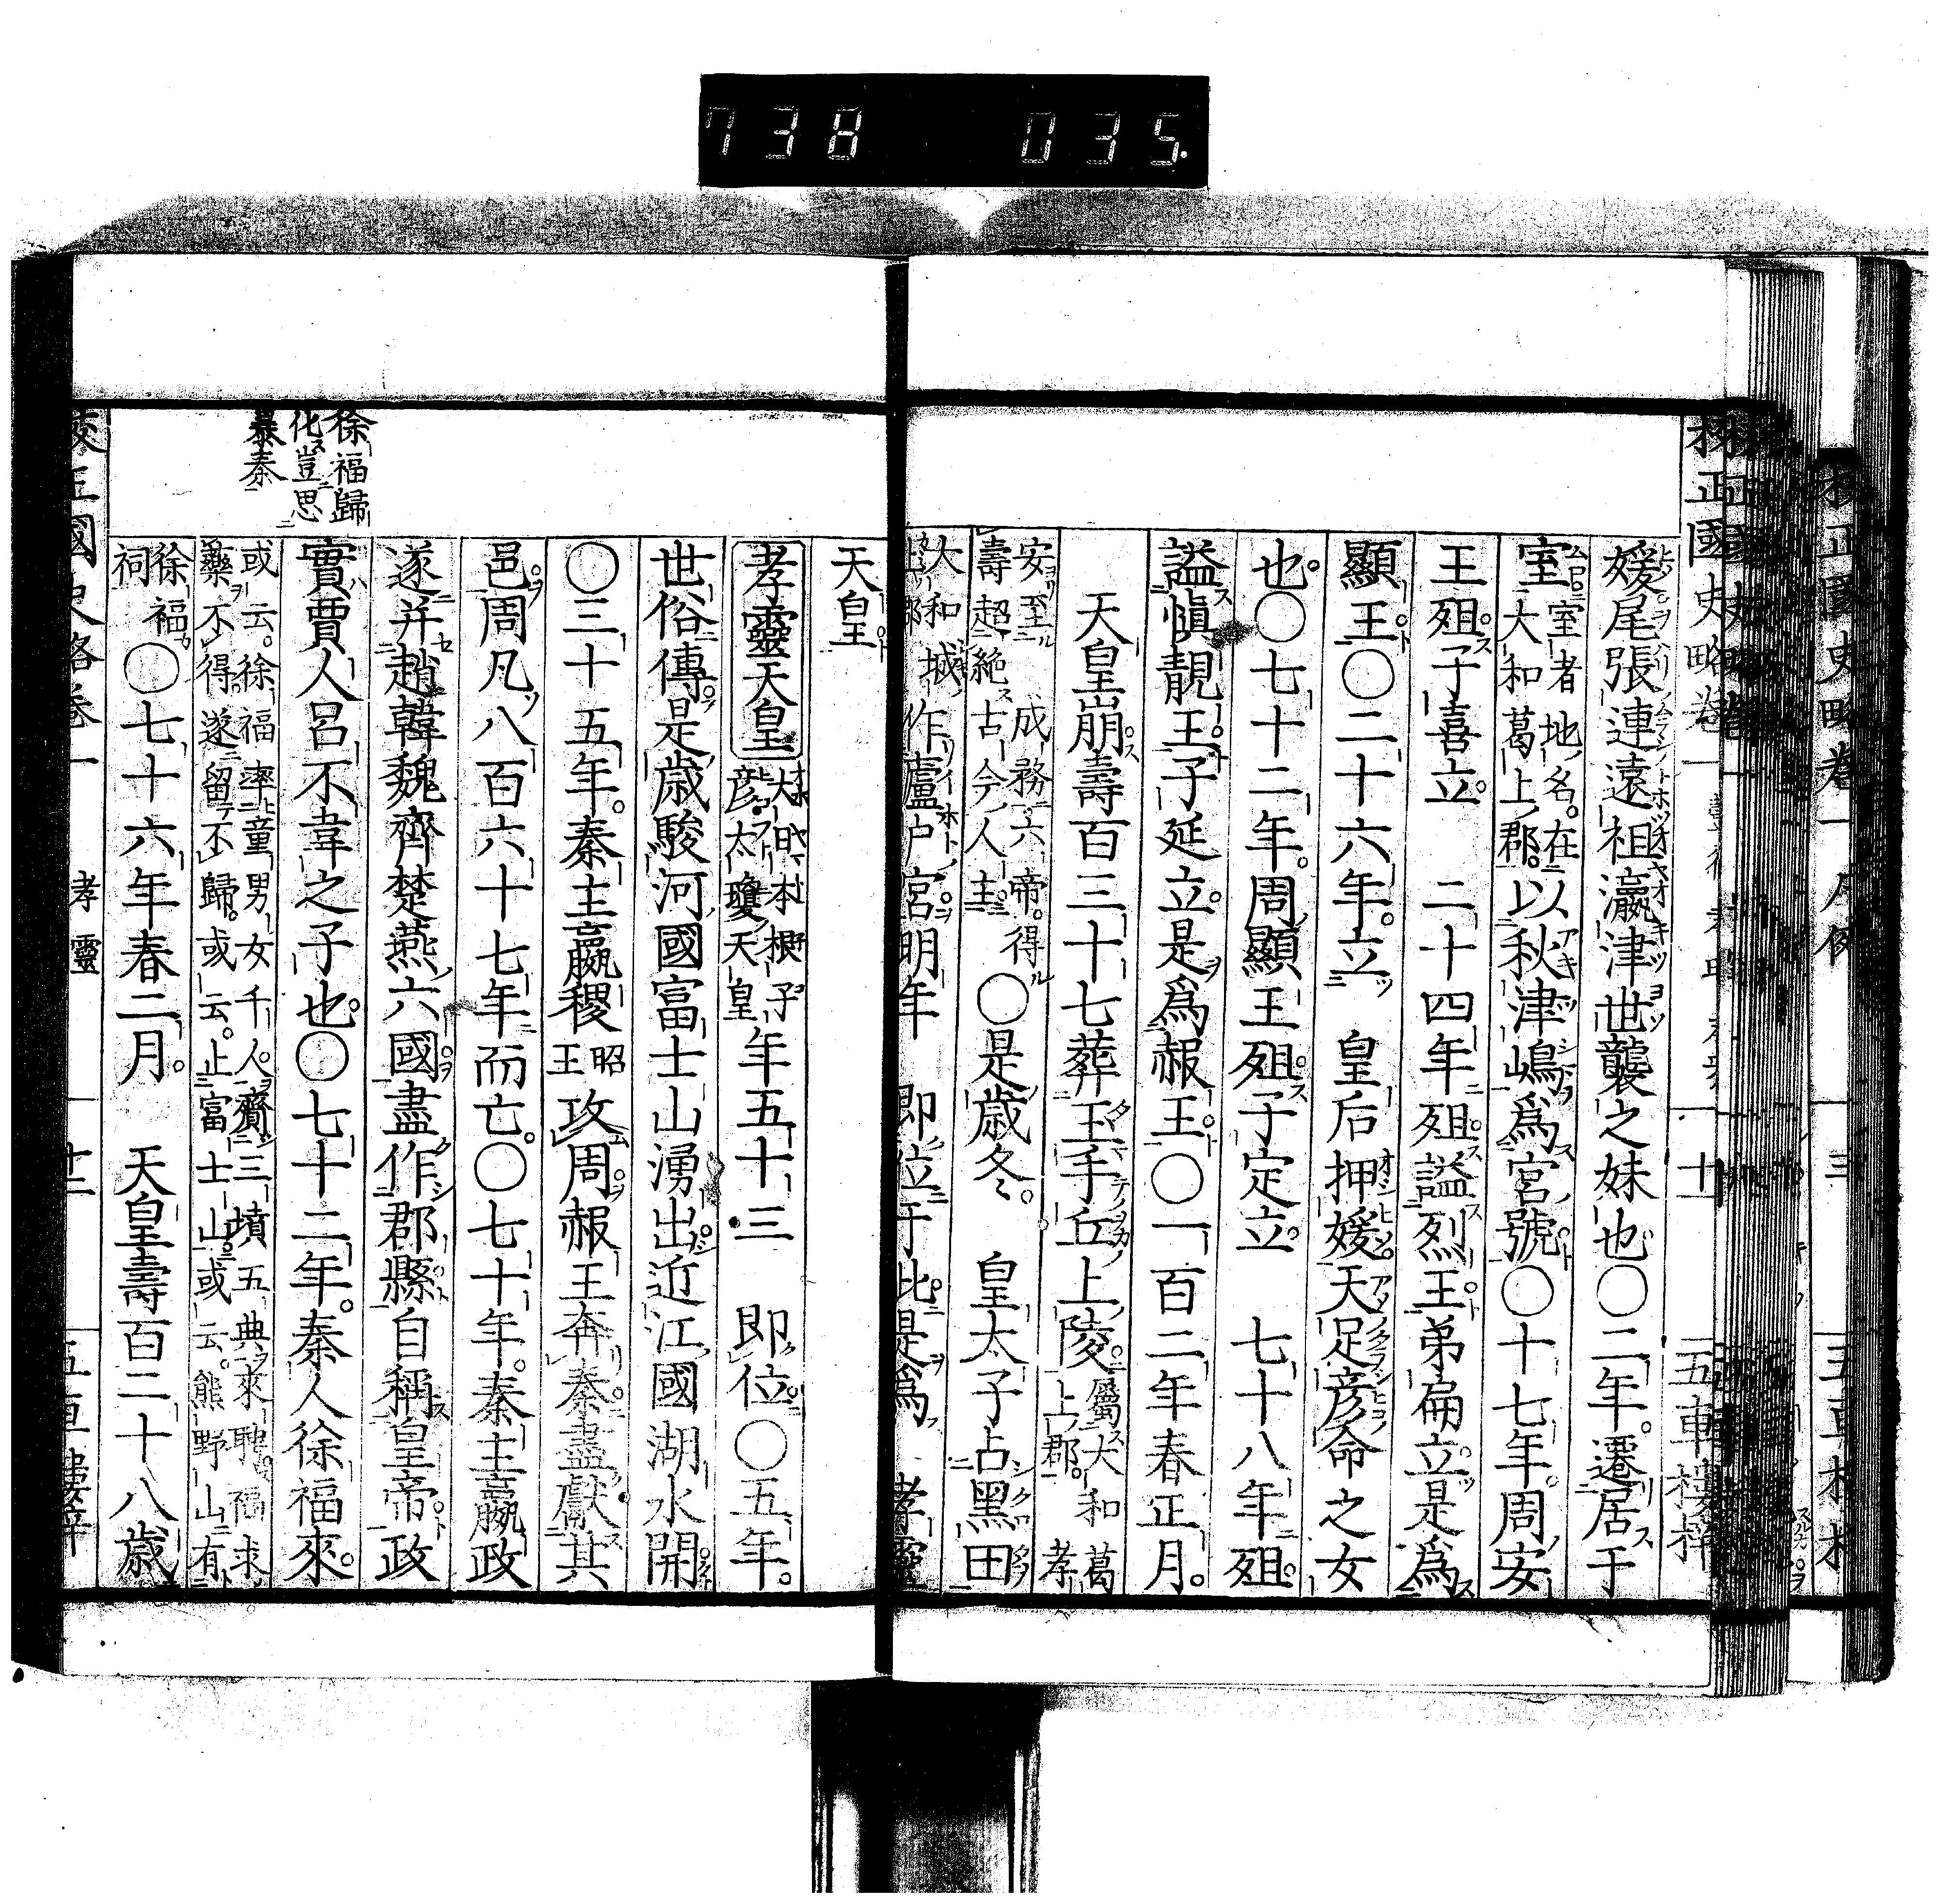 738 035
媛尾張連遠祖瀛津世襲之妹也○二年遷居于
室室者地名在大和葛上郡以秋津嶋爲宮號○十七年周安
王殂子喜立 二十四年殂謚烈王弟扁立是爲
顯王○二十六年立 皇后押媛天足彦命之女
也○七十二年周顯王殂子定立 七十八年殂
謚愼靚王子延立是爲赧王○一百二年春正月
天皇崩壽百三十七葬玉手丘上陵屬大和葛上郡孝
安至 成務六帝得壽超絶古今人主○是歳冬 皇太子占黑田
大和城 作廬戸宮明年 即位于此是爲 孝靈
天皇
孝靈天皇大日本根子彦太瓊天皇年五十三 即位○五年
世俗傳是歳駿河國富士山湧出近江國湖水開
○三十五年秦主嬴稷昭王攻周赧王奔秦盡獻其
邑周凡八百六十七年而亡○七十年秦主嬴政
遂并趙韓魏齊楚燕六國盡作郡縣自稱皇帝政
實賈人呂不韋之子也○七十二年秦人徐福來
徐福歸
化豈思
暴秦
或云徐福率童男女千人齎三墳五典來聘福求
藥不得遂留不歸或云止富士山或云熊野山有
徐福祠○七十六年春二月 天皇壽百二十八歳
孝靈